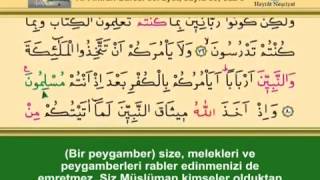 Hayrât Neşriyat
وَلٰكِنْ كُونُوا رَبَّانِيّ۪نَ بِمَا كُنْتُمْ تُعَلِّمُونَ الْكِتَابَ وَبِمَا
كُنْتُمْ تَدْرُسُونَ ﴿٧٩﴾ وَلَا يَأْمُرَكُمْ اَنْ تَتَّخِذُوا الْمَلٰٓئِكَةَ
وَالنَّبِيّ۪نَ اَرْبَابًا اَيَأْمُرُكُمْ بِالْكُفْرِ بَعْدَ اِذْ اَنْتُمْ مُسْلِمُونَ
﴿٨٠﴾ وَاِذْ اَخَذَ اللّٰهُ م۪يثَاقَ النَّبِيّ۪نَ لَمَٓا اٰتَيْتُكُمْ مِنْ
(Bir peygamber) size, melekleri ve
peygamberleri rabler edinmenizi de
emretmez. Siz Müslüman kimseler olduktan